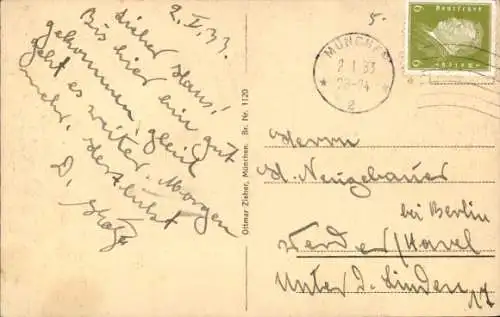 2. I. 33.
Lieber Hans!
Bis hier bin gut
gekommen, gleich
geht es weiter. Morgen
mehr. Herzlichst
D.
5.
MÜNCHEN
2. 1. 33
23-24
* 2 *
Deutsches Reich
6 6
Ottmar Zieher, München. Br. Nr. 1120
Herrn
H. Neugebauer
bei Berlin
Werder/Havel
Unter d. Linden